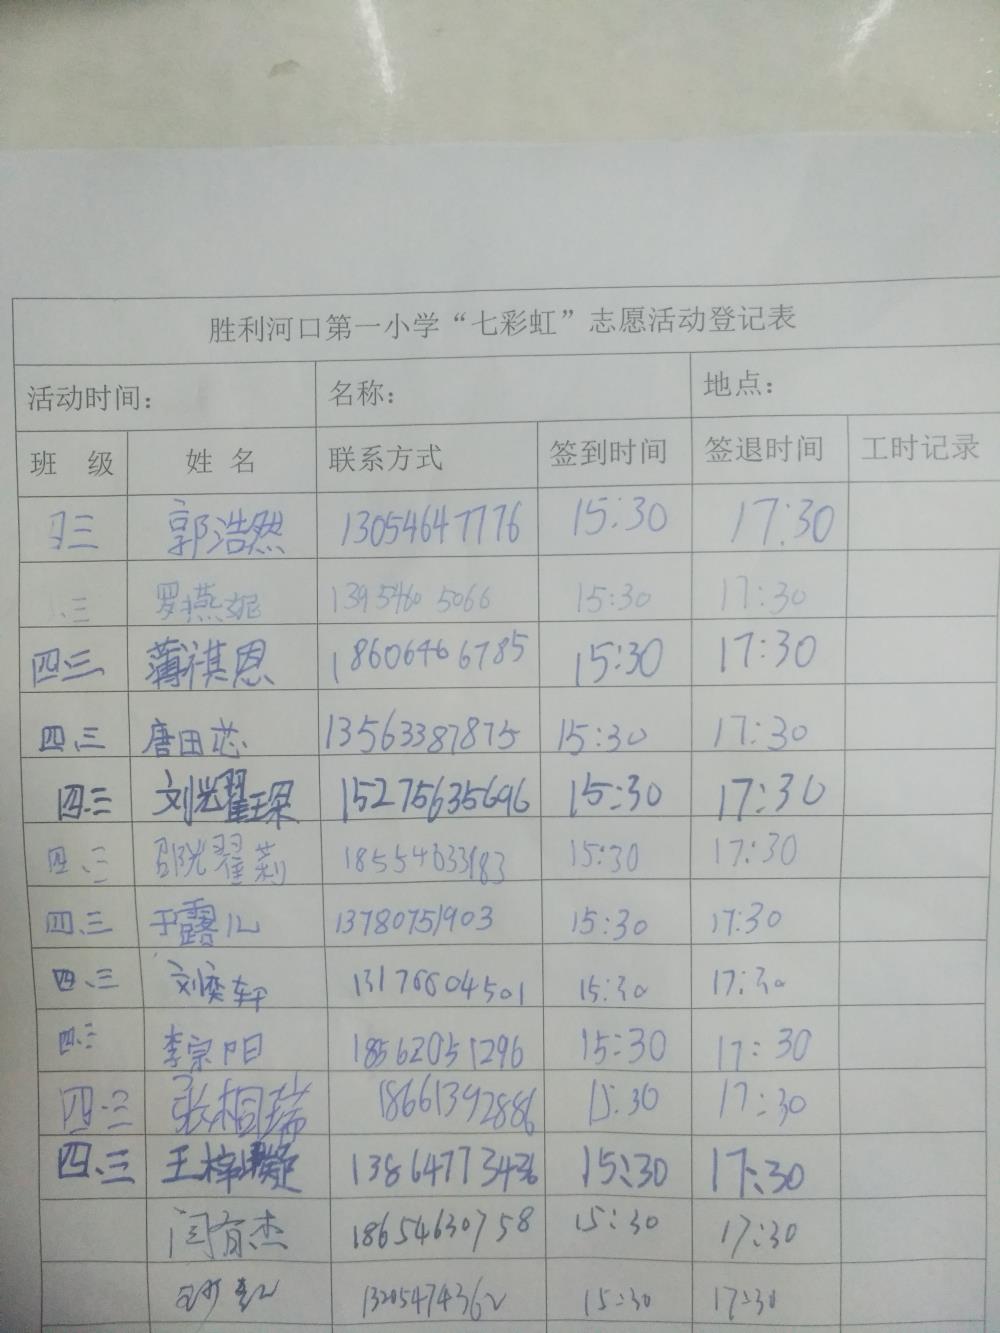 胜利河口第一小学“七彩虹”志愿活动登记表
活动时间： 名称： 地点：
班 级 姓 名 联系方式 签到时间 签退时间 工时记录
三 郭浩然 13054647776 15:30 17:30
.三 罗燕妮 13954605066 15:30 17:30
四.三 薄祺恩 18606466785 15:30 17:30
四.三 唐田芯 13563387875 15:30 17:30
四.三 刘光翟琛 15275635696 15:30 17:30
四.三 邵光翟莉 18554633183 15:30 17:30
四.三 于露儿 13780751903 15:30 17:30
四.三 刘奕轩 13176604501 15:30 17:30
四.三 李宗阳 18562051296 15:30 17:30
四.三 张桐瑞 18661392886 15:30 17:30
四.三 王梓凝 13864773436 15:30 17:30
闫有杰 18654630758 15:30 17:30
13205474362 15:30 17:30